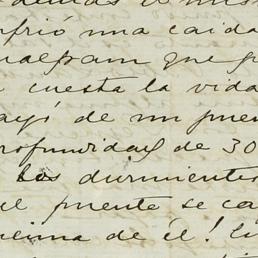 demás el mism
ufrió una caida
ualpam que p
cuesta la vida
ayó de un puen
rofundidad de 30
los durmientes
el puente se ca
ncima de él! Lu